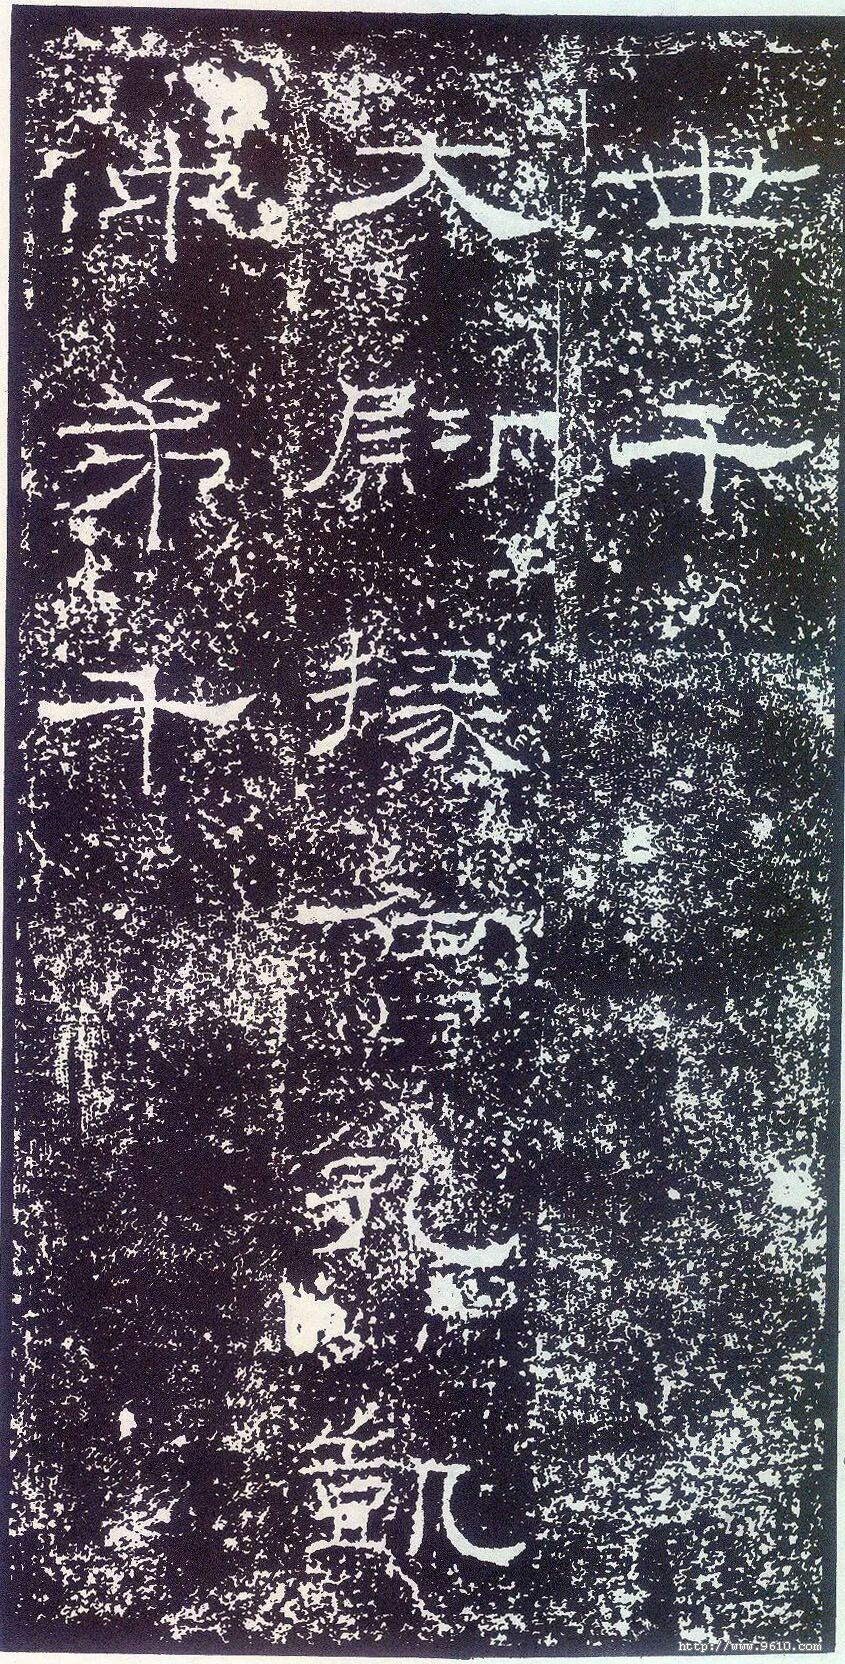 世千
大尉掾魯孔凱
仲弟千
http://www.9610.com